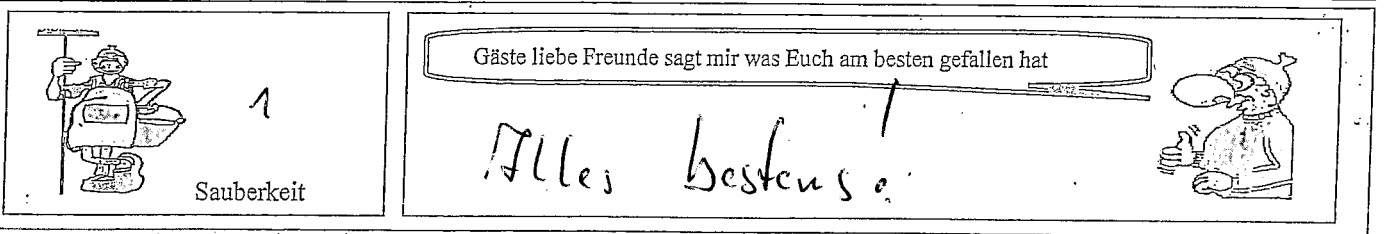 1
Sauberkeit
Gäste liebe Freunde sagt mir was Euch am besten gefallen hat
Alles bestens!